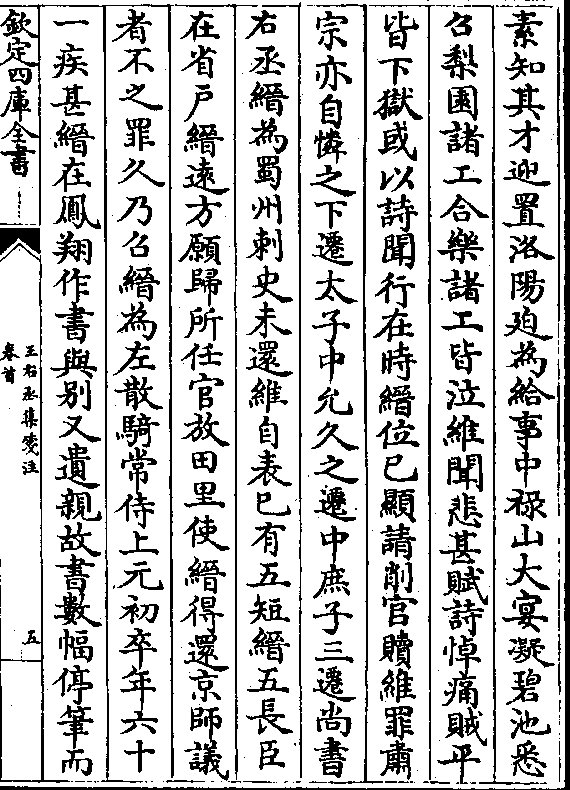 素知其才迎置洛陽廹為給事中禄山大宴凝碧池悉
召梨園諸工合樂諸工皆泣維聞悲甚賦詩悼痛賊平
皆下獄或以詩聞行在時縉位已顯請削官贖維罪肅
宗亦自憐之下遷太子中允久之遷中庶子三遷尚書
右丞縉為蜀州刺史未還維自表已有五短縉五長臣
在省戶縉逺方願歸所任官放田里使縉得還京師議
者不之罪久乃召縉為左散騎常侍上元初卒年六十
一疾甚縉在鳳翔作書與别又遺親故書數幅停筆而
欽定四庫全書
王右丞集箋注
卷首
五